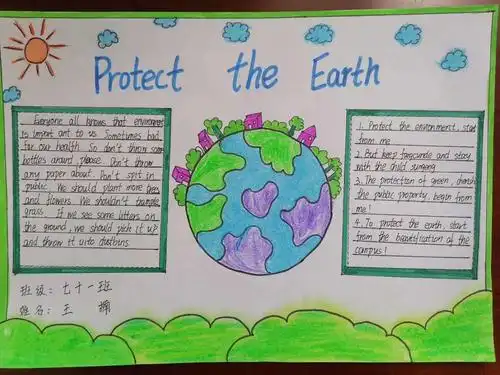 Protect the Earth
Everyone all knows that environment
is import ant to us. Sometimes bad
for our health. So don't throw some
bottles around, please. Don't throw
any paper about. Don't spit in
public. We should plant more trees
and flowers. We shouldn't trample
grass. If we see some litters on
the ground, we should pick it up
and throw it into dustbins.
1. Protect the environment, start
from me.
2. But keep fangcunde and stay
with the child surging.
3. The protection of green, cherish
the public property, begin from
me!
4. To protect the earth, start
from the beautification of the
campus!
班级：七十一班
姓名：王